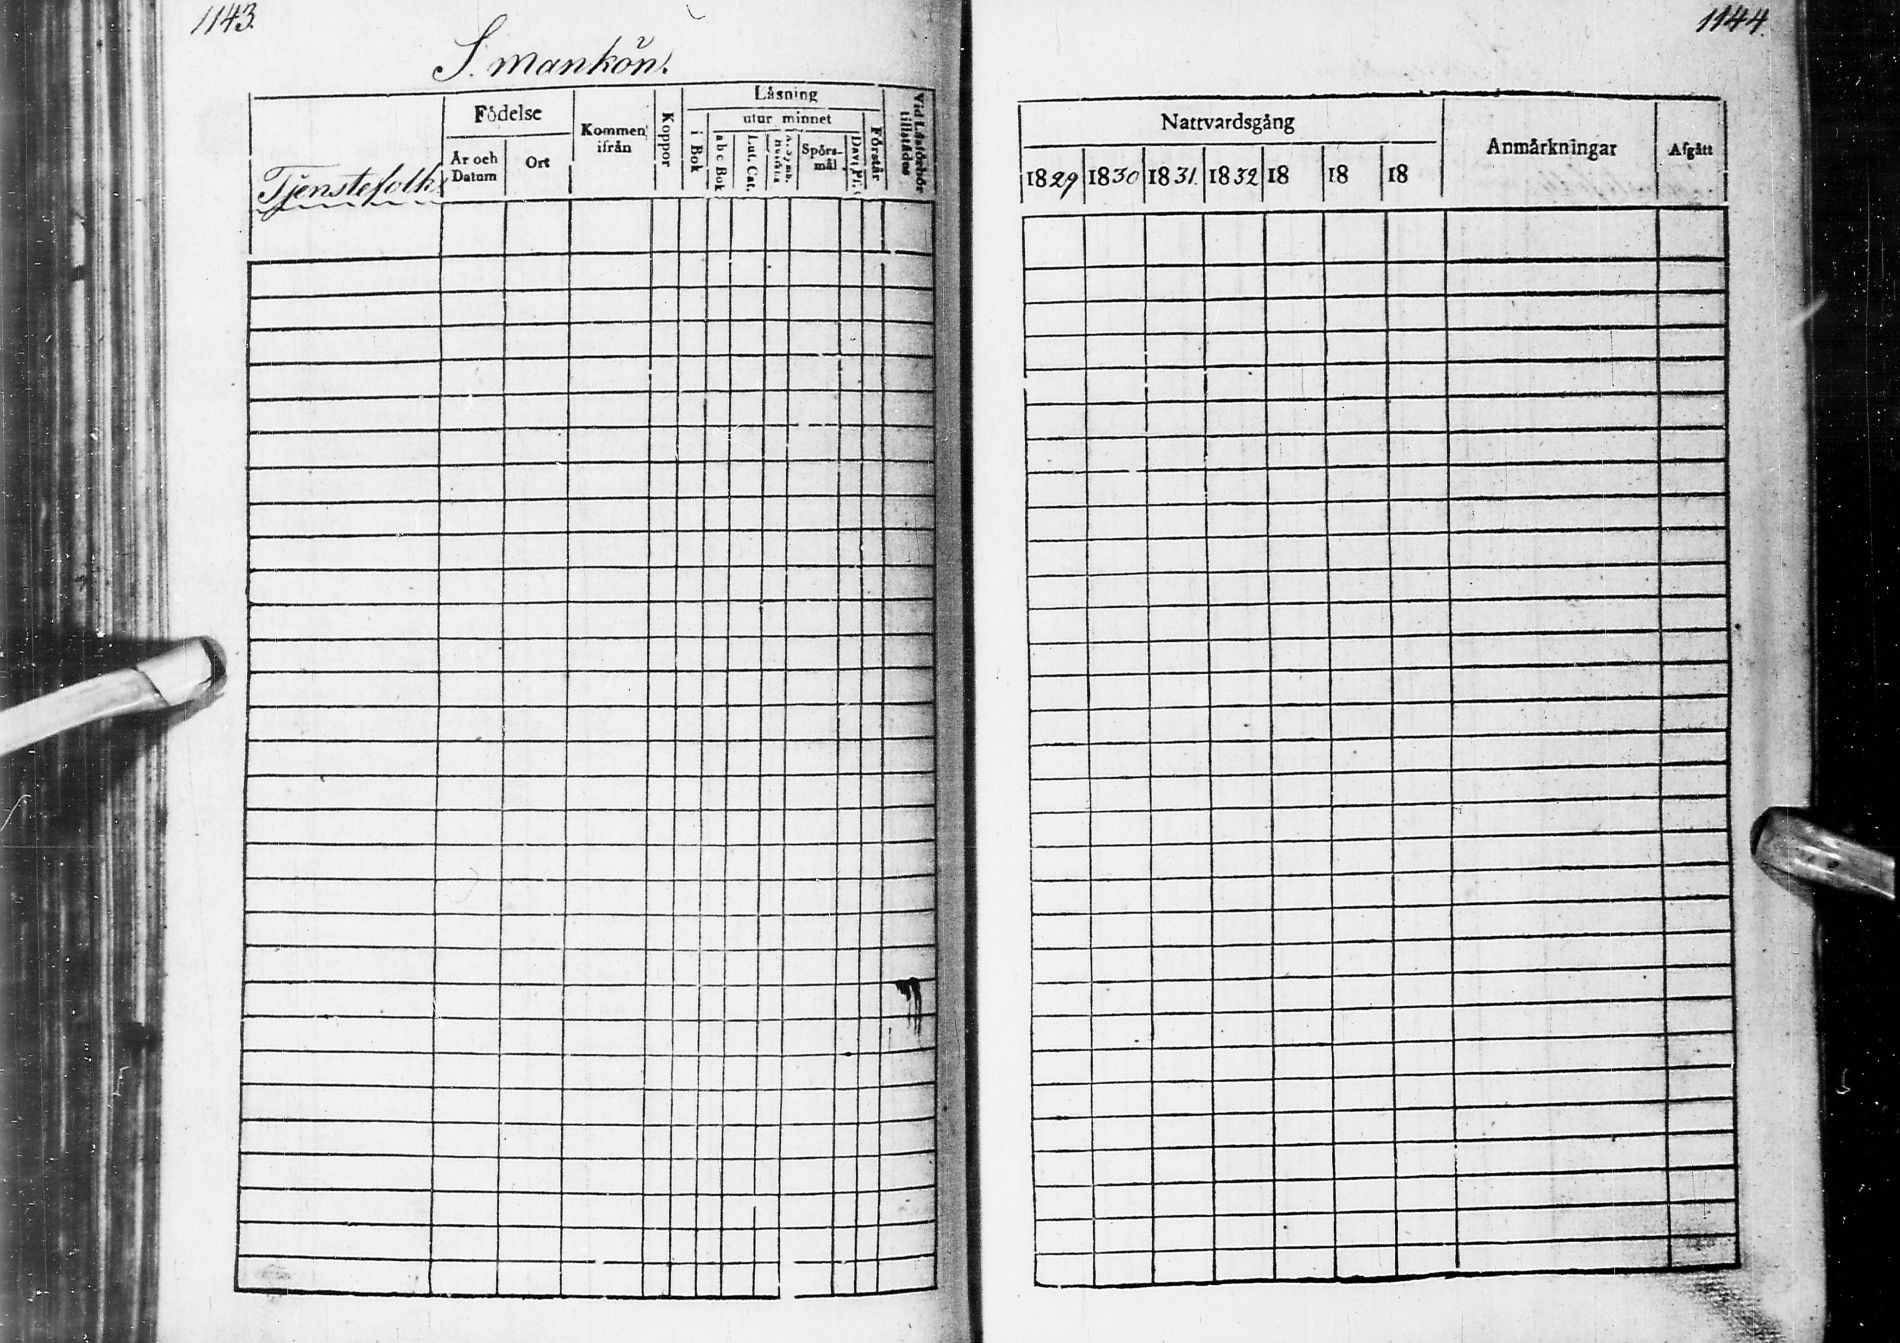 1143.
S. mankön.
Tjenstefolk
Födelse
År och
Datum
Ort
Kommen
ifrån
Koppor
Läsning
i Bok
utur minnet
a b c Bok
Lut. Cat.
Spörs-
mål
Dav. Ps.
Förstår
Vid Läsförhör
tillstädes
1144.
Nattvardsgång
1829 1830 1831. 1832 18 18 18
Anmärkningar
Afgått